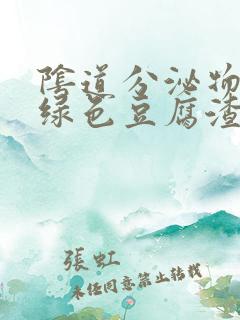 陰道分泌物
绿色豆腐渣
張虹
未經同意禁止转载